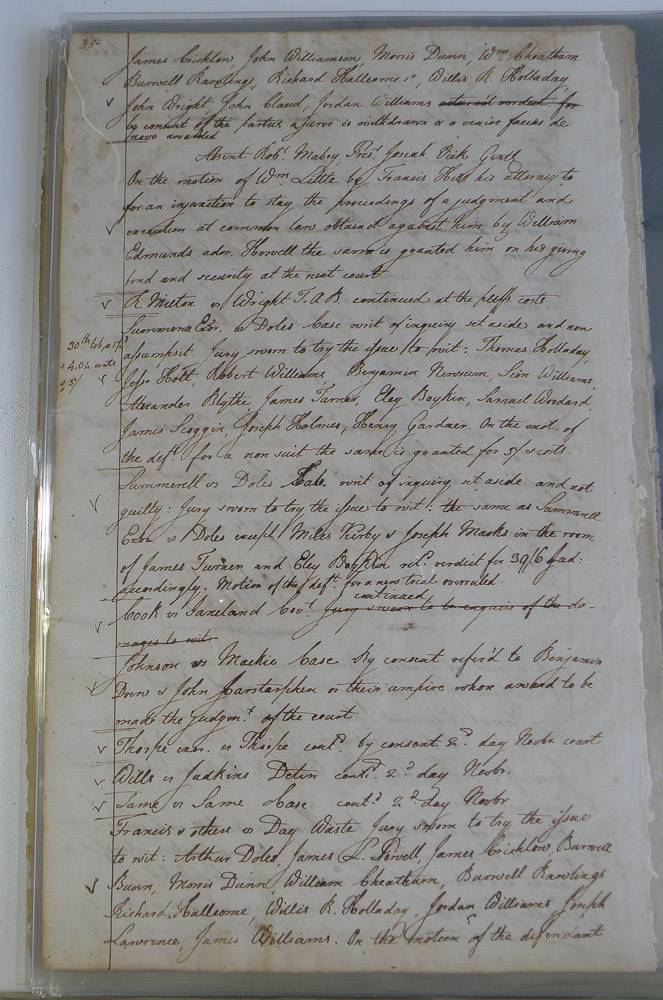 35
James Cricklow, John Williamson, Morris Dunn, Wm Cheatham
Burwell Rawlings, Richard Hallcome, Willis R. Holladay
John Wright John Claud, Jordan Williams verdict for
by consent of the parties a juror is withdrawn & a venire facias de
novo awarded
Absent Robt. Mabry, Prest. Josiah Gentl
On the motion of Wm Little by Francis his attorney to
for an injunction to stay the proceedings of a judgment and
execution at common law obtained against him by William
Edmunds adm. Howell the same is granted him on his giving
bond and security at the next court
R Milton vs Wright T. A B. continued at the pltfs. costs
Exor. vs Doles Case writ of inquiry set aside and non
30th
4.04 cents
5/
assumpsit. Jury sworn to try the issue to wit: Thomas Holladay,
Jesse Holt, Robert Williams, Benjamin Newsum, Sion Williams,
Alexander Blythe, James Turner, Eley Boykin, Samuel Woodard,
James Scoggin, Joseph Holmes, Henry Gardner. On the mot. of
the deft. for a non suit the same is granted for 5/ & costs.
Summerell vs Doles Case. writ of inquiry set aside and not
guilty: Jury sworn to try the issue to wit: the same as Summerell
Exor vs Doles except Miles Kirby & Joseph Masks in the room
of James Turner and Eley Boykin retd. verdict for 39/6 & Jud:
accordingly. Motion of the deft. for a new trial overruled
continued
Cook vs Covt. Jury sworn to be enquire of the da-
mages to wit
Johnson vs Mackie Case By consent refer'd to Benjamin
Drew & John Harstorphen or their umpire whose award to be
made the Judgmt. of the court
Thorpe vs Thorpe contd. by consent 2d. day Novbr court
Wills vs Judkins Detin contd. 2d. day Novbr.
Same vs Same Case contd 2d. day Novbr
Francis & others vs Day Waste Jury sworn to try the issue
to wit: Arthur Doles, James L. Powell, James Cricklow, Burwell
Bunn, Morris Dunn, William Cheatham, Burwell Rawlings
Richard Hallcome, Willis R. Holladay, Jordan Williams, Joseph
Lawrence, James Williams. On the motion of the defendant